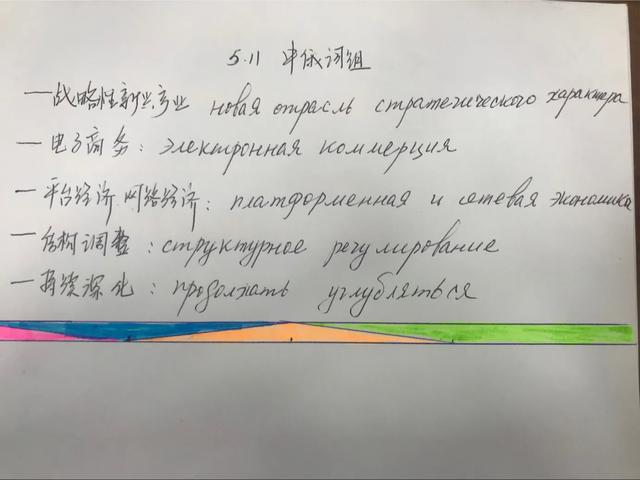 5.11 中俄词组
一战略性新兴产业 новая отрасль стратегического характера
一电子商务：электронная коммерция
一平台经济、网络经济：платформенная и сетевая экономика
一结构调整：структурное регулирование
一持续深化：продолжать углубляться